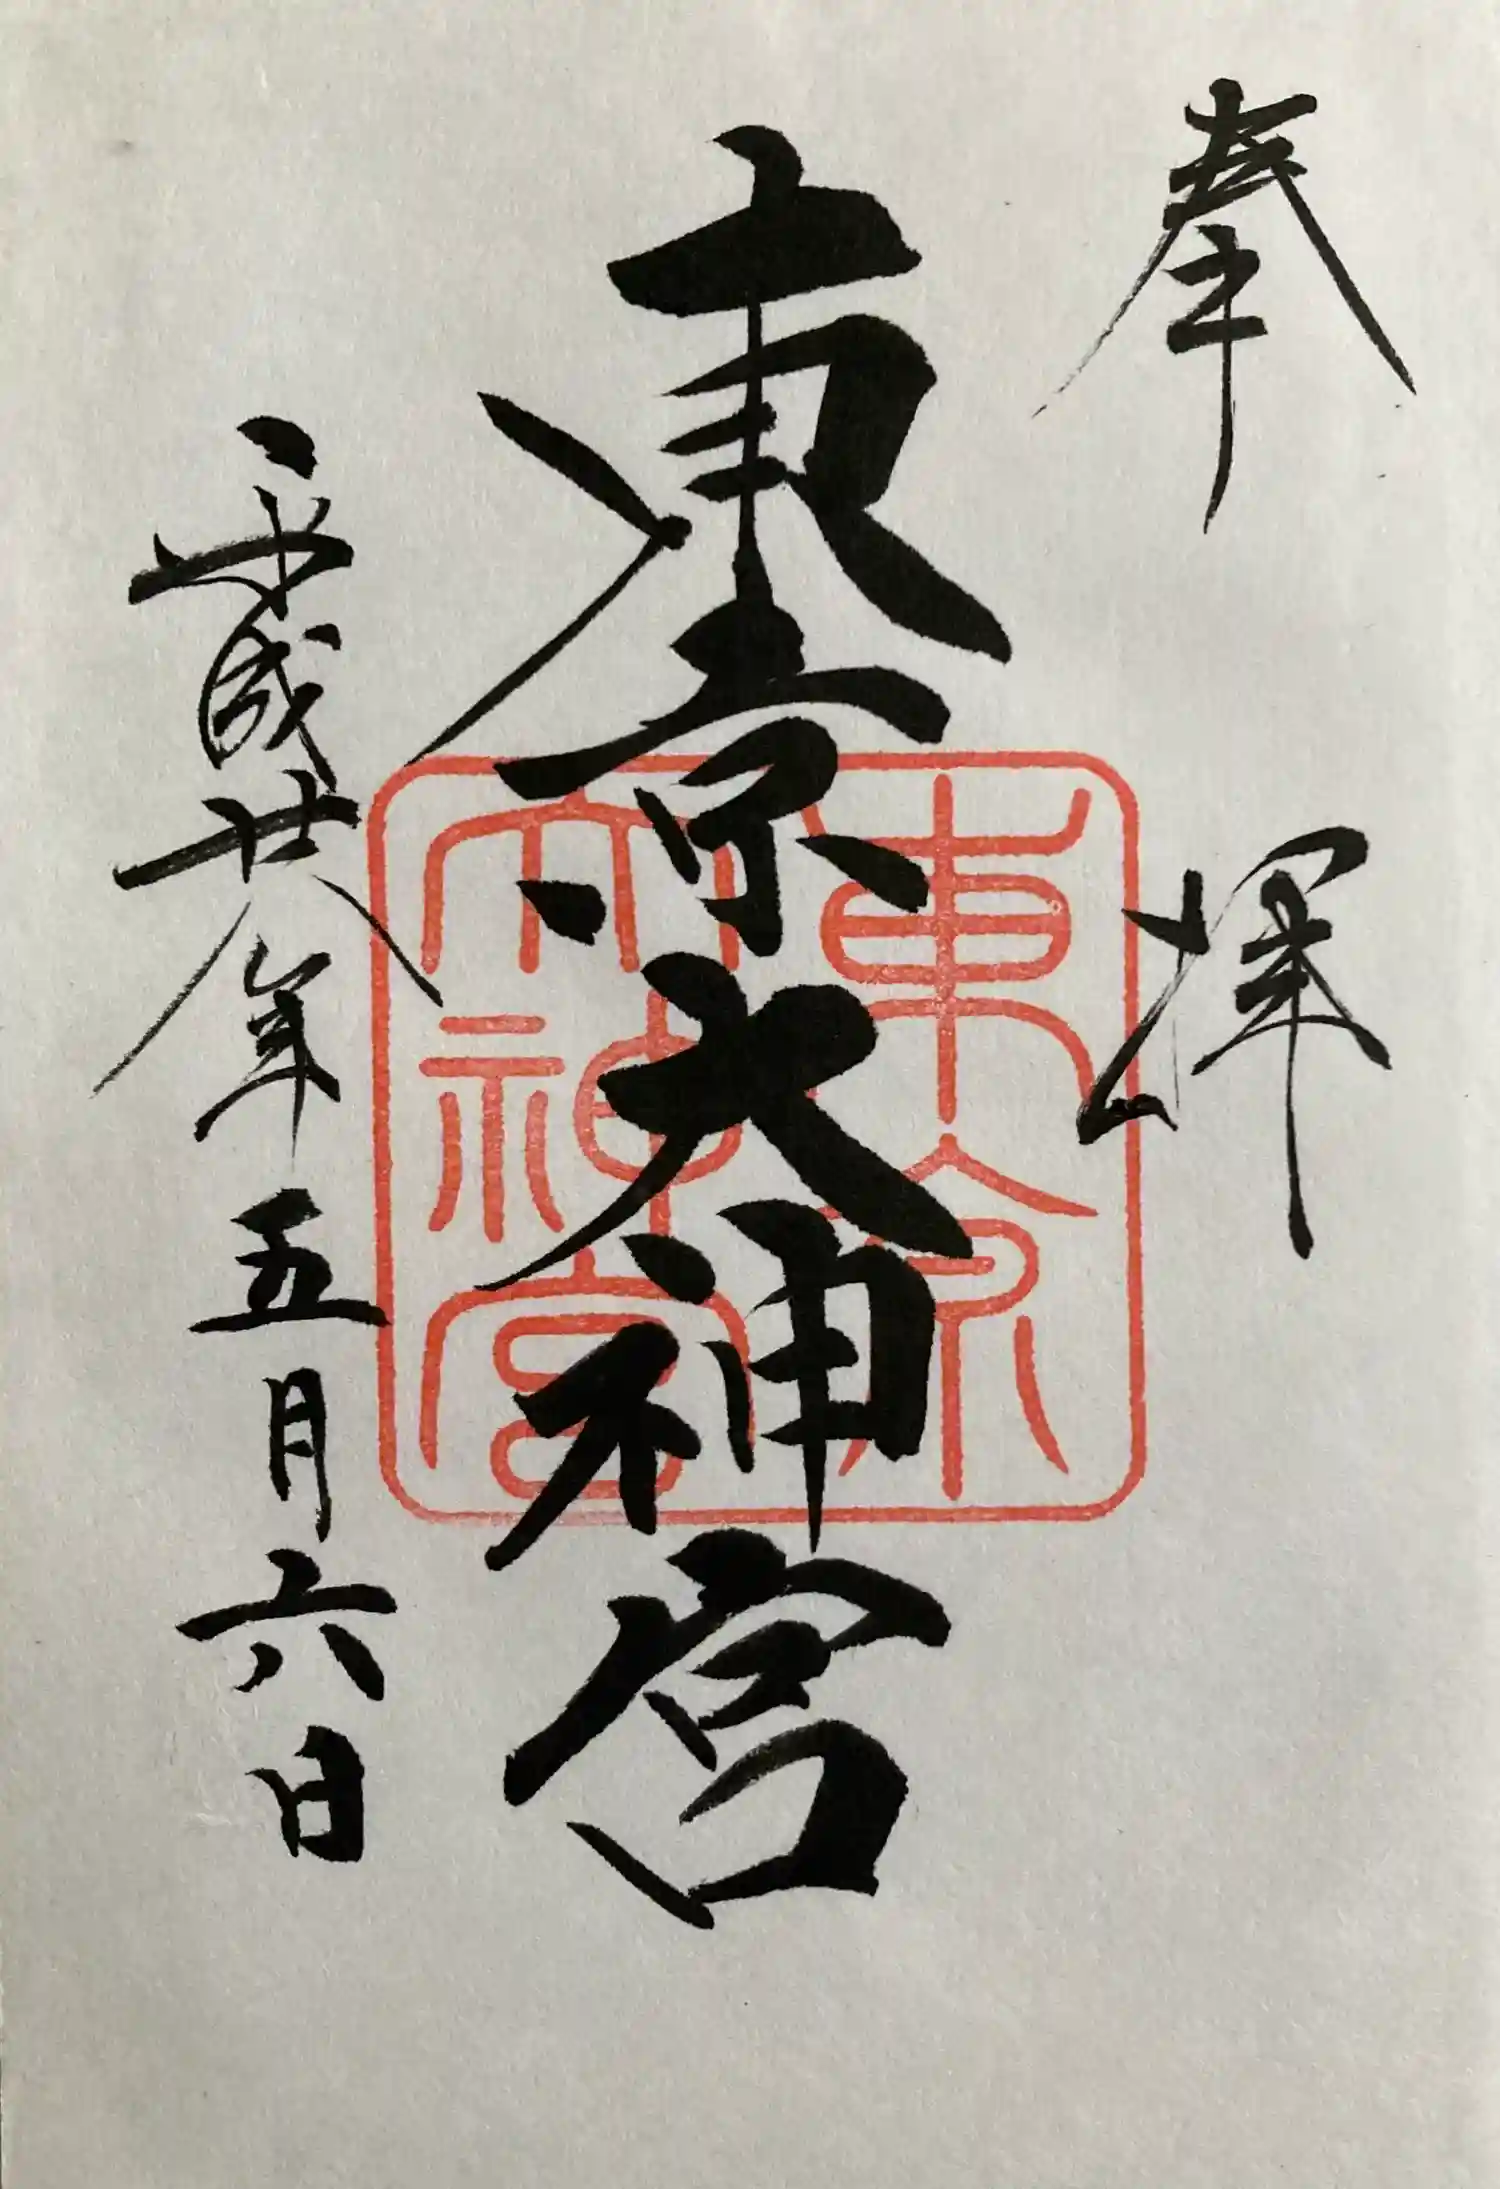 奉拝
東京大神宮
東京
大神宮
平成廿八年五月六日